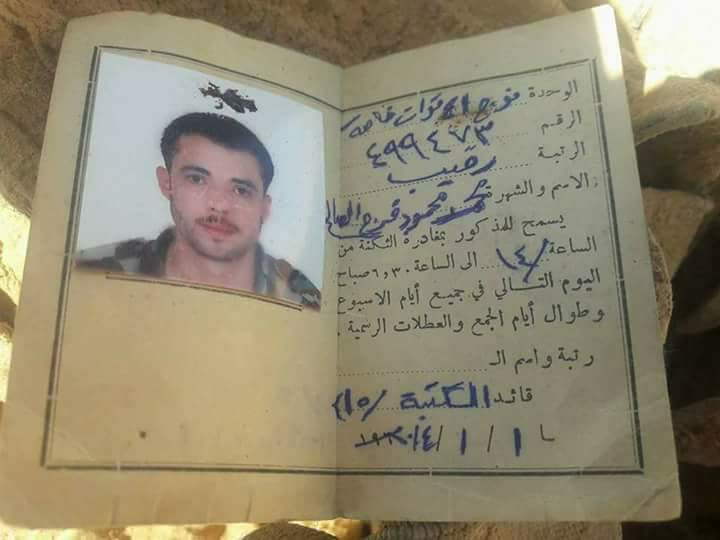 الوحدة فوج ٤ قوات خاصه
الرقم ٤٩٩٤٧٣
الرتبة رقيب
الاسم والشهرة محمود فرج
يسمح للمذكور بمغادرة الثكنة من
الساعة ١٤/ الى الساعة ٦,٣٠ صباح
اليوم التالي في جميع أيام الاسبوع
وطوال أيام الجمع والعطلات الرسمية .
رتبة واسم الـ
قائد الكتبة /١٥
١/١/٢٠١٤